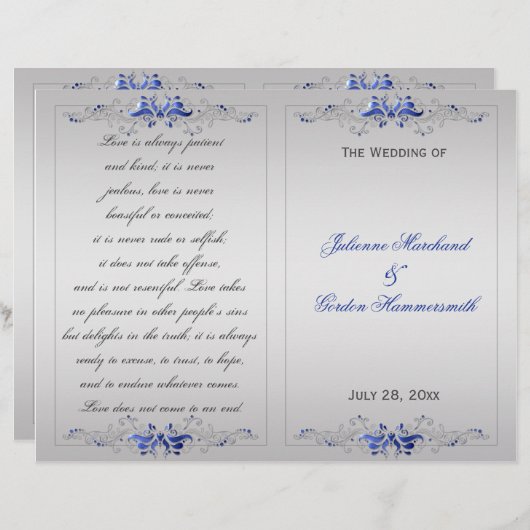 Love is always patient
and kind; it is never
jealous, love is never
boastful or conceited;
it is never rude or selfish;
it does not take offense,
and is not resentful. Love takes
no pleasure in other people's sins
but delights in the truth; it is always
ready to excuse, to trust, to hope,
and to endure whatever comes.
Love does not come to an end.
The Wedding of
Julienne Marchand
&
Gordon Hammersmith
July 28, 20xx